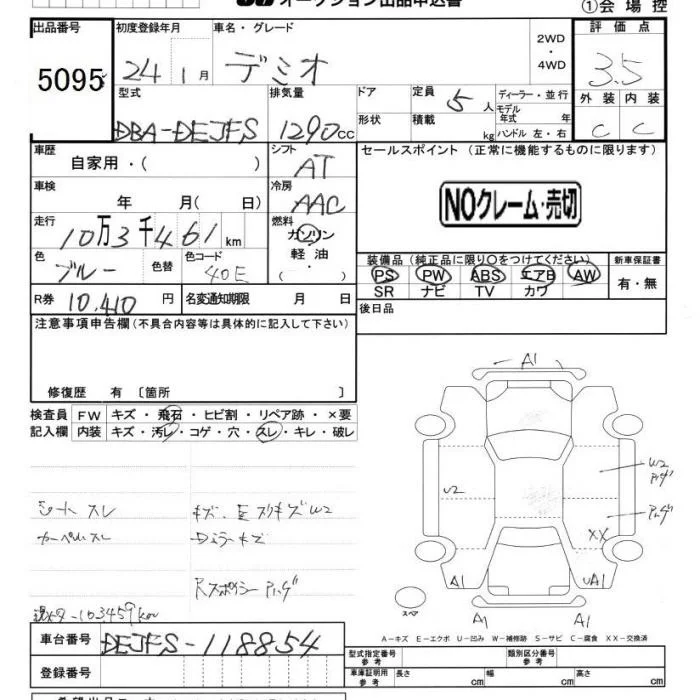 オークション出品申込書
①会場控
出品番号 初度登録年月 車名・グレード 評価点
5095 24年1月 デミオ 2WD・4WD 3.5
型式 排気量 ドア 定員 5人 ディーラー・並行 外装 内装
DBA-DEJFS 1290cc 形状 積載 kg モデル年式 年 ハンドル 左・右 C C
車歴 シフト セールスポイント (正常に機能するものに限ります)
自家用・( ) AT
車検 冷房 NOクレーム・売切
年 月( 日) AAC
走行 燃料
10万3千461km ガソリン 軽油 ・( )
装備品(純正品に限り○をつけてください) 新車保証書
色 色替 色コード
ブルー 40E
PS PW ABS エアB AW 有・無
SR ナビ TV カワ
R券 10,410円 名変通知期限 月 日 後日品
注意事項申告欄(不具合内容等は具体的に記入して下さい)
修復歴 有 〔箇所 〕
検査員 FW キズ・飛石・ヒビ割・リペア跡・×要
記入欄 内装 キズ・汚レ・コゲ・穴・スレ・キレ・破レ
A1
W2
U2
XX
A1
UA1
スペア
A1 A1
シート スレ
W2
カーペットスレ
ミラーキズ
Rスポイラー
103459km
A-キズ E-エクボ U-凹み W-補修跡 S-サビ C-腐食 XX-交換済
車台番号 DEJFS-118854
型式指定番号 参考 類別区分番号 参考
登録番号 車庫証明用 参考 長さ cm 幅 cm 高さ cm